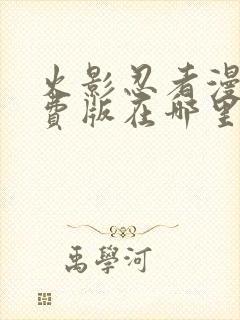 火影忍者漫
费版在哪里
禹學河